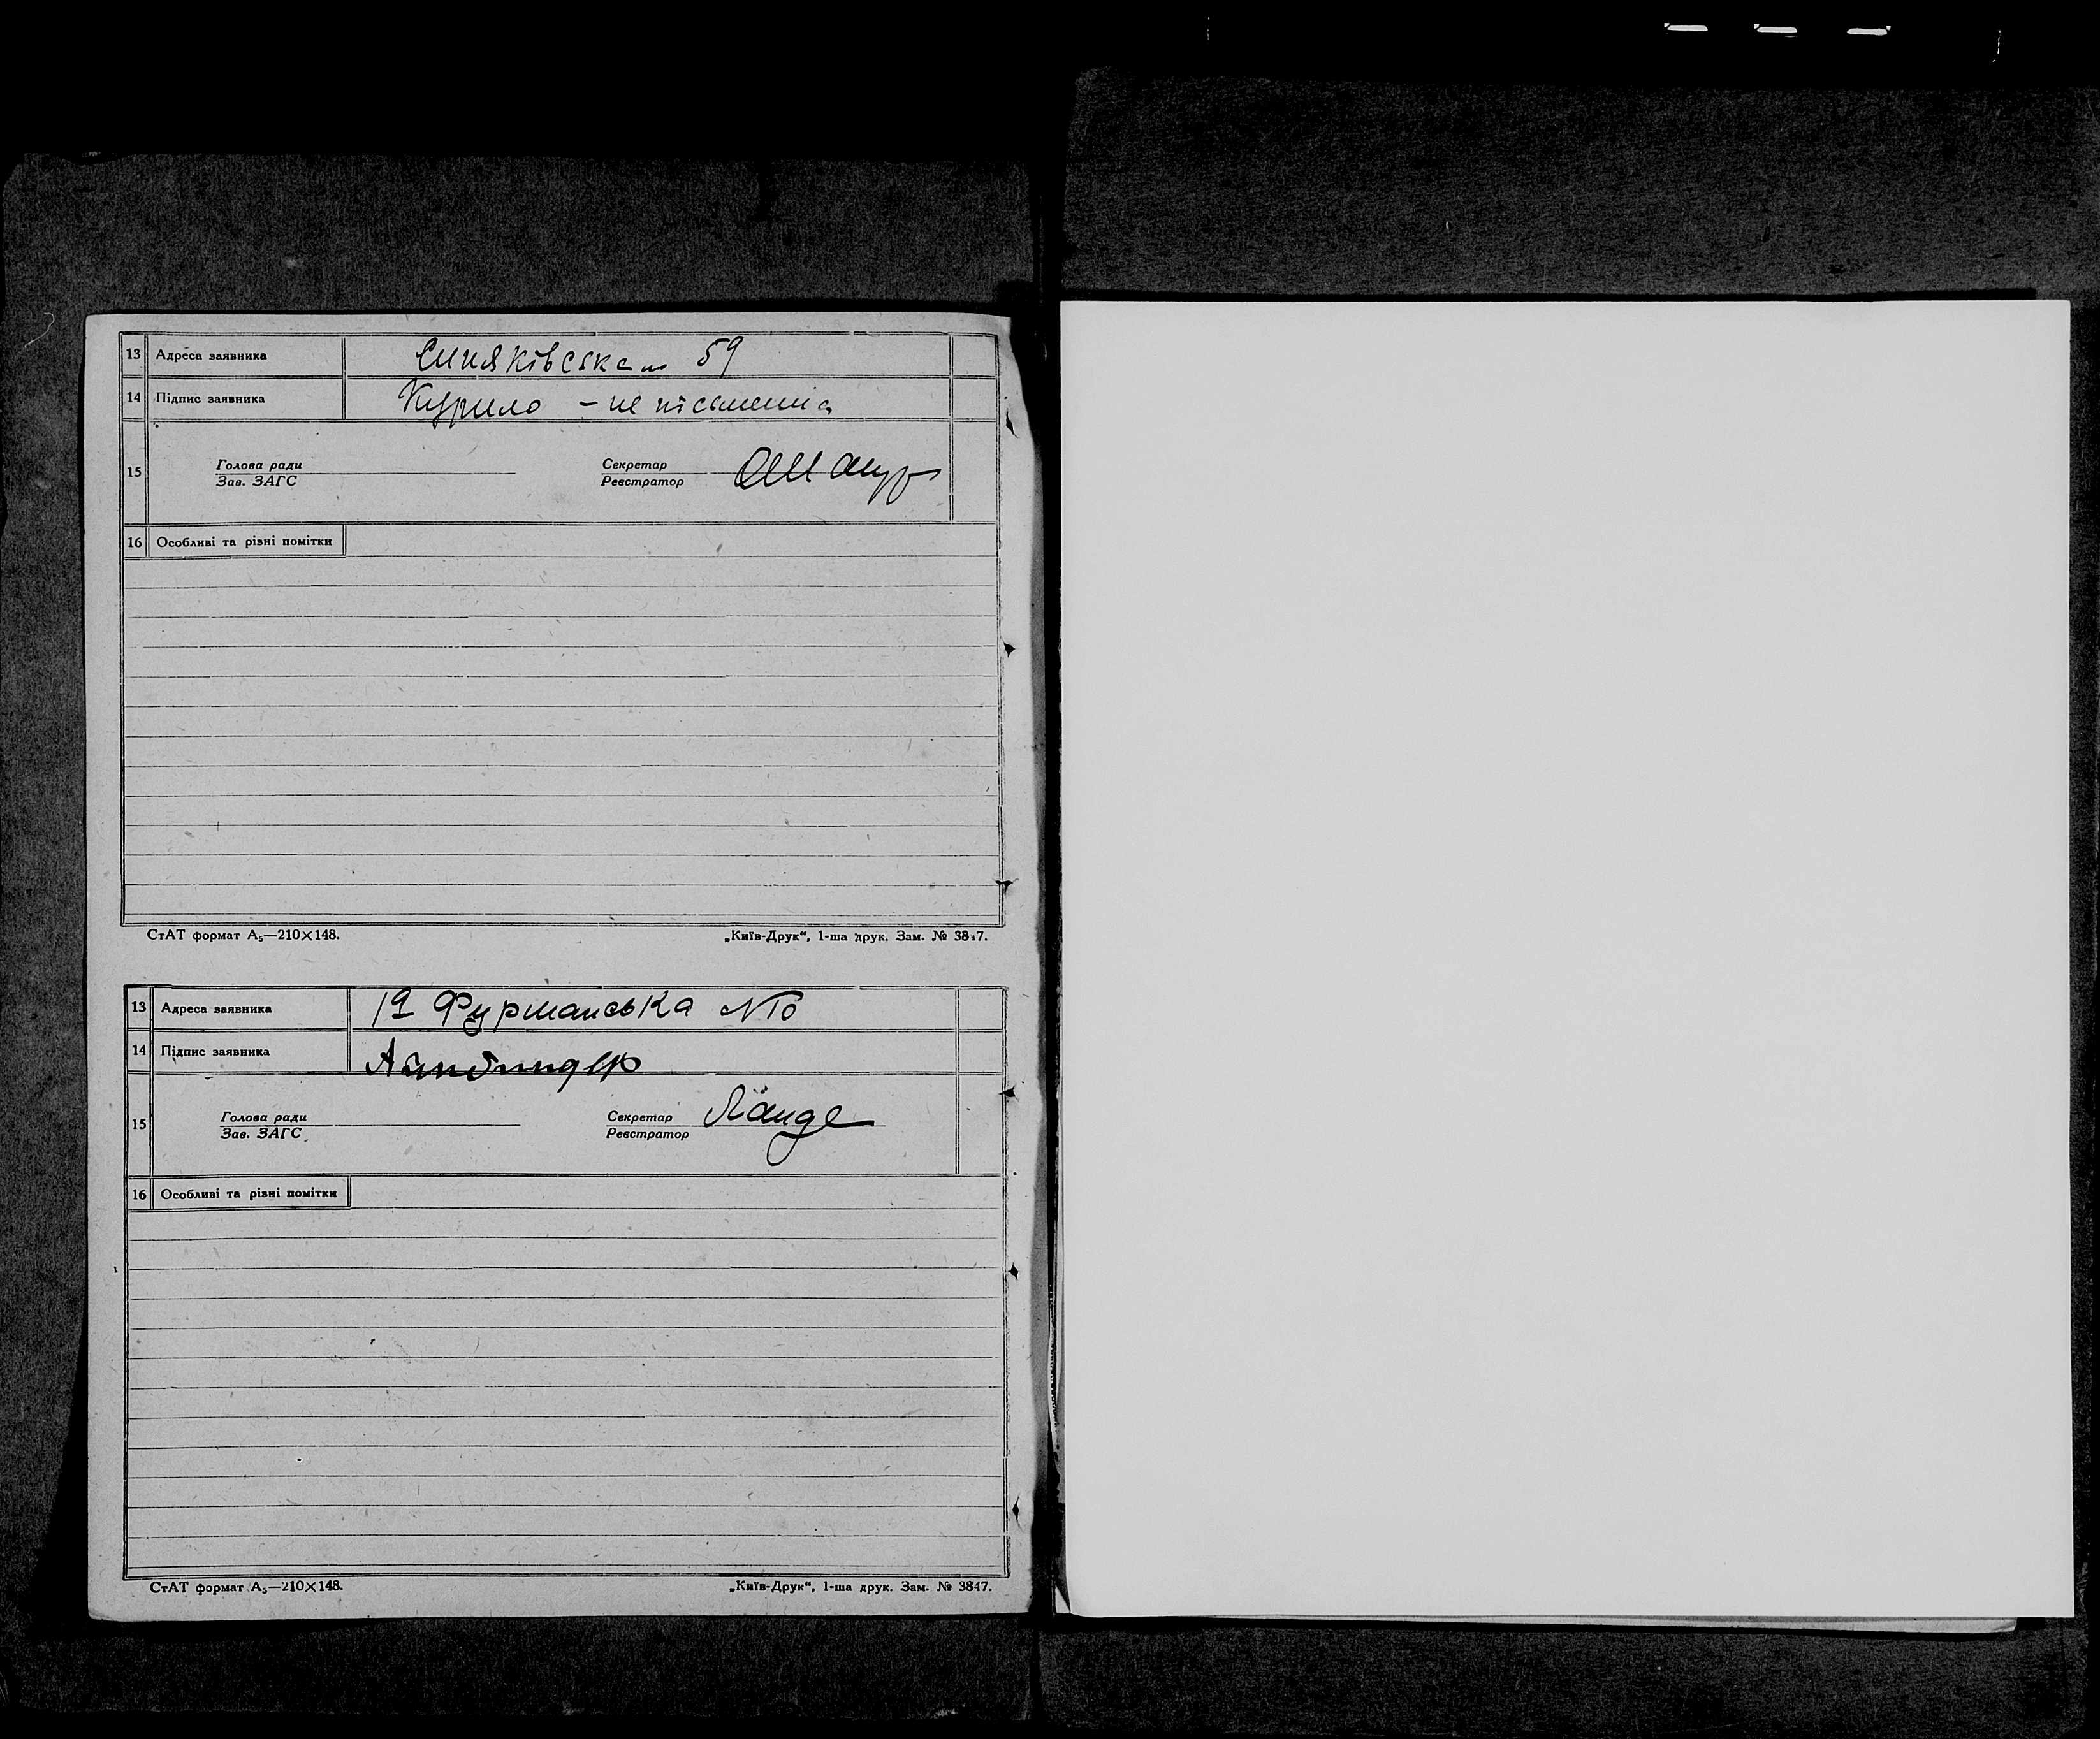 13 Адреса заявника Синяківська 59
14 Підпис заявника Курило – не письменна
15 Голова ради Секретар
Зав. ЗАГС Реєстратор
16 Особливі та різні помітки
СтАТ формат А₅—210×148. „Київ-Друк“, 1-ша друк. Зам. № 3847.
13 Адреса заявника 19 Фурманська №
14 Підпис заявника
15 Голова ради Секретар Ланде
Зав. ЗАГС Реєстратор
16 Особливі та різні помітки
СтАТ формат А₅—210×148. „Київ-Друк“, 1-ша друк. Зам. № 3847.